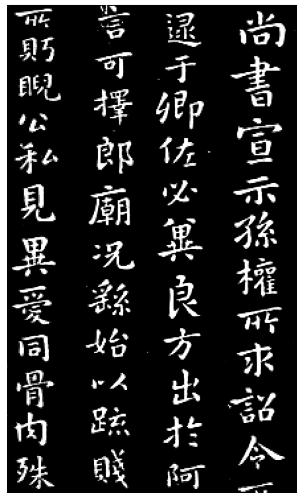 尚書宣示孫權所求詔令
逮于卿佐必冀良方出於阿
言可擇郎廟況繇始以疏賤
所盱睨公私見異愛同骨肉殊